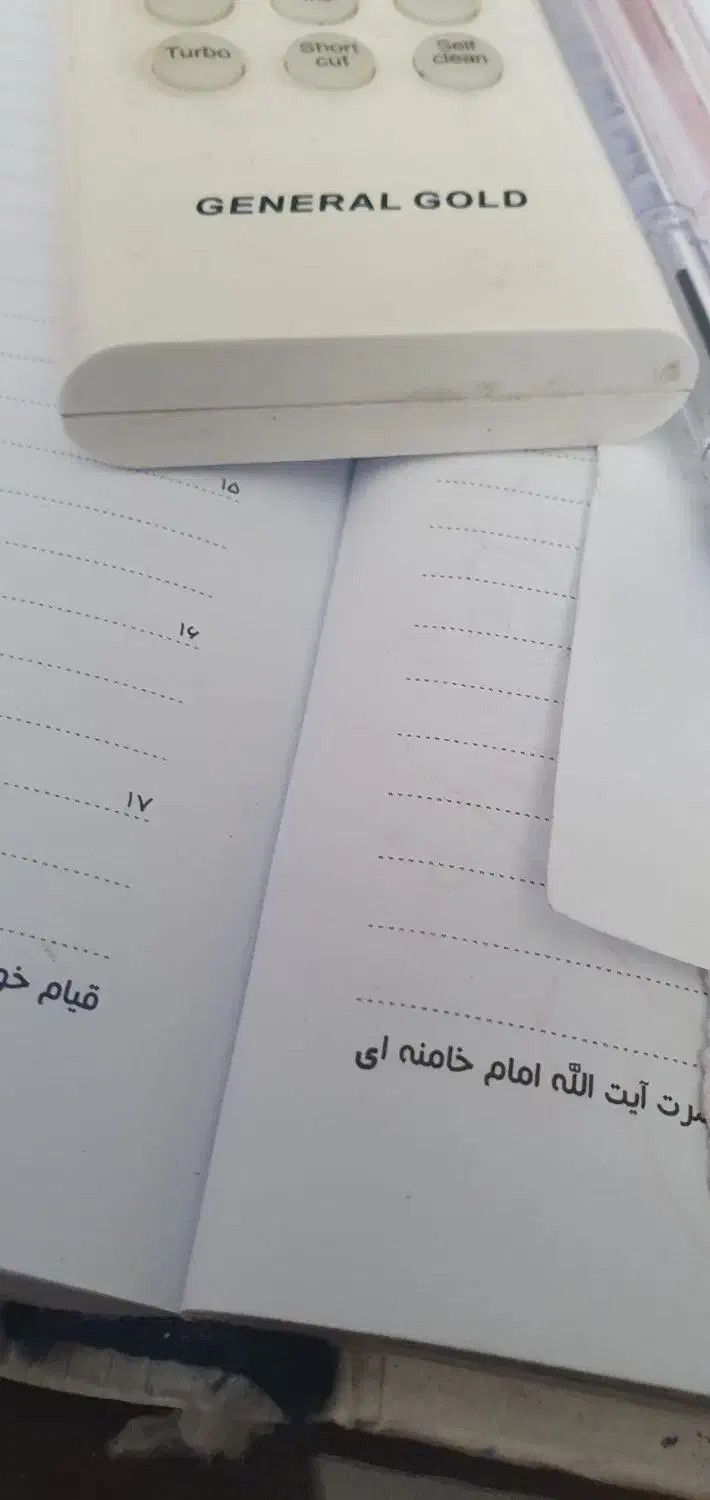 Turbo
Short cut
Self clean
GENERAL GOLD
۱۵
۱۶
۱۷
قیام
آیت الله امام خامنه ای